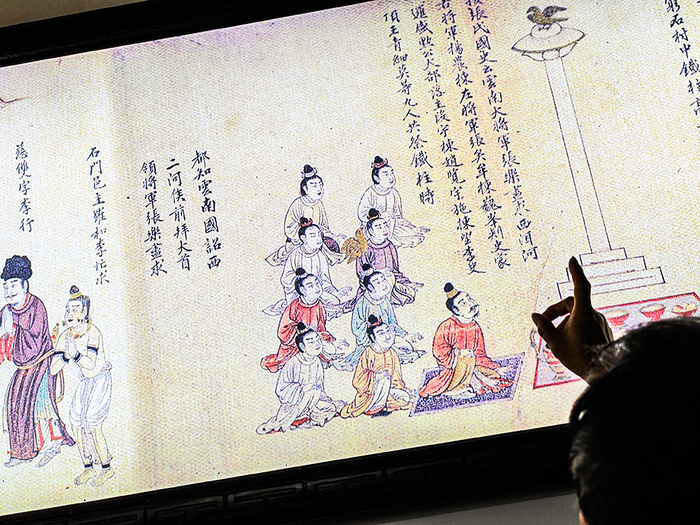 石村中鐵柱高
張氏國史云雲南大將軍張樂盡求西洱河
右將軍楊農棟左將軍張矣牟棟巍峯刺史蒙
邏盛勲公大部落主段宇棟趙覽宇施棟望李史
頂王青細莫等九人共祭鐵柱時
都知雲南國詔西
二河侯前拜大首
領將軍張樂盡求
石門邑主羅和李忙求
慈雙宇李行